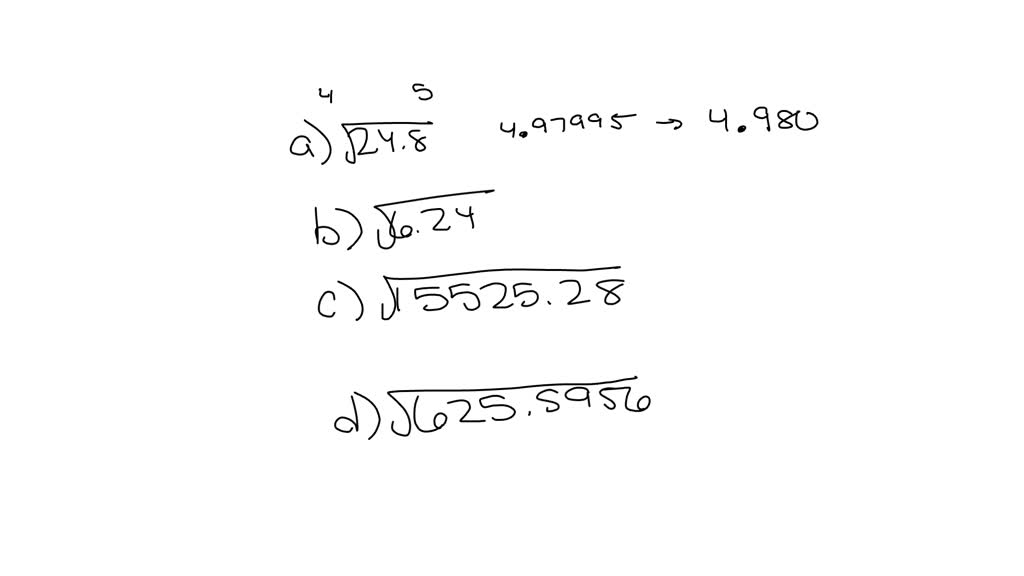 4 5
a) √24.8 4.97995 → 4.980
b) √6.24
c) √15525.28
d) √625.5956